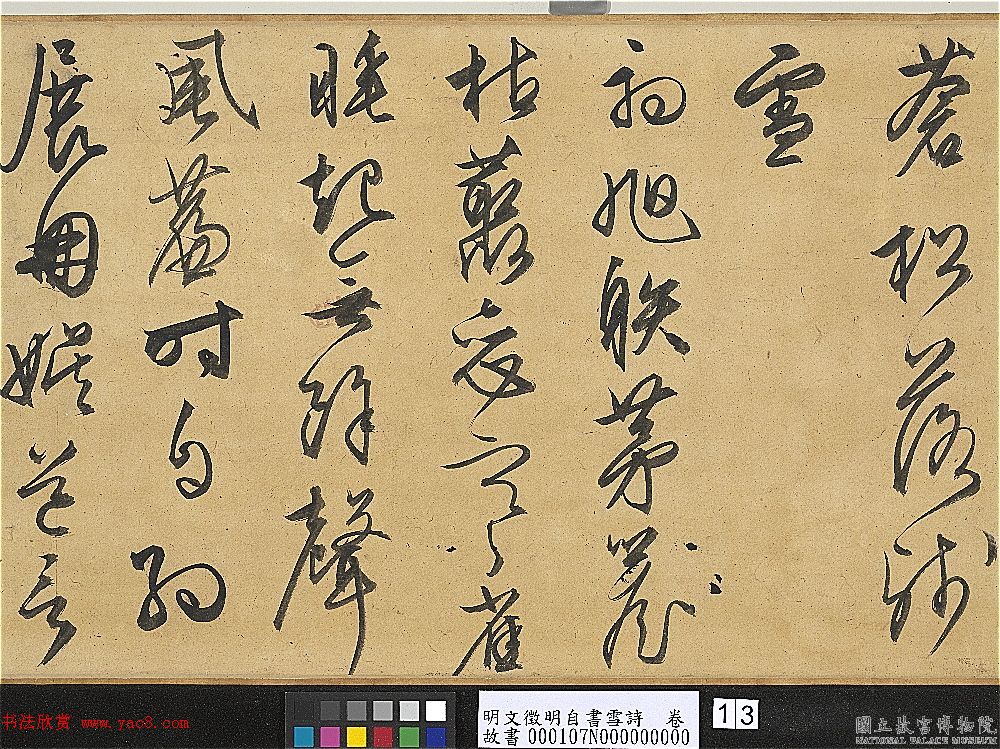 蒼松落殘
雪
初旭映茅
枯叢寒雀
睡起無餘聲
風簾時自
展冊娛道言
书法欣赏 www.yac8.com
明文徵明自書雪詩 卷
故書 000107N000000000
13
國立故宮博物院
NATIONAL PALACE MUSEUM